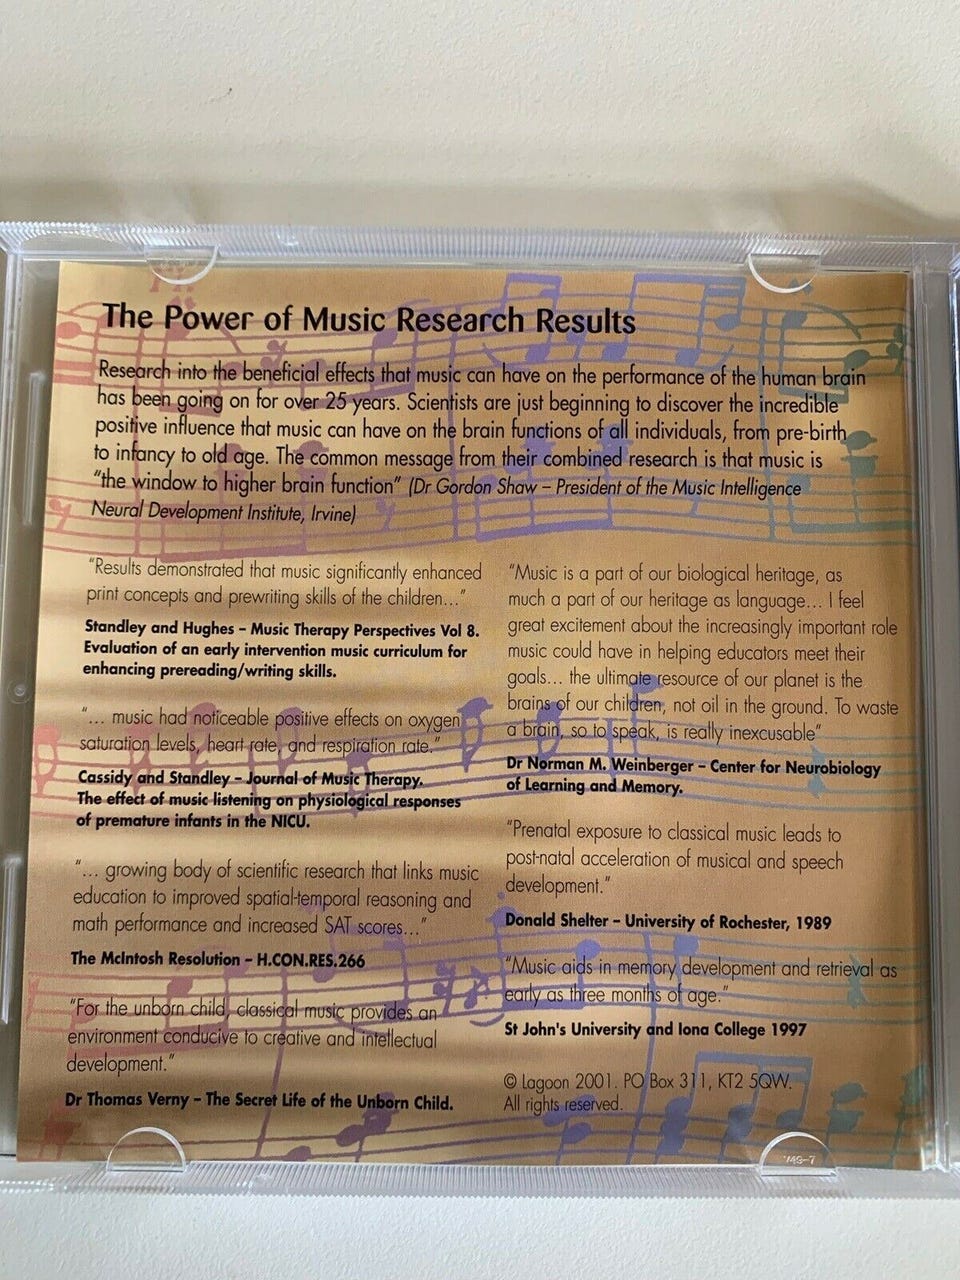 The Power of Music Research Results
Research into the beneficial effects that music can have on the performance of the human brain
has been going on for over 25 years. Scientists are just beginning to discover the incredible
positive influence that music can have on the brain functions of all individuals, from pre-birth
to infancy to old age. The common message from their combined research is that music is
“the window to higher brain function” (Dr Gordon Shaw – President of the Music Intelligence
Neural Development Institute, Irvine)
“Results demonstrated that music significantly enhanced
print concepts and prewriting skills of the children...”
Standley and Hughes – Music Therapy Perspectives Vol 8.
Evaluation of an early intervention music curriculum for
enhancing prereading/writing skills.
“... music had noticeable positive effects on oxygen
saturation levels, heart rate, and respiration rate.”
Cassidy and Standley – Journal of Music Therapy.
The effect of music listening on physiological responses
of premature infants in the NICU.
“... growing body of scientific research that links music
education to improved spatial-temporal reasoning and
math performance and increased SAT scores...”
The McIntosh Resolution – H.CON.RES.266
“For the unborn child, classical music provides an
environment conducive to creative and intellectual
development.”
Dr Thomas Verny – The Secret Life of the Unborn Child.
“Music is a part of our biological heritage, as
much a part of our heritage as language... I feel
great excitement about the increasingly important role
music could have in helping educators meet their
goals... the ultimate resource of our planet is the
brains of our children, not oil in the ground. To waste
a brain, so to speak, is really inexcusable”
Dr Norman M. Weinberger – Center for Neurobiology
of Learning and Memory.
“Prenatal exposure to classical music leads to
post-natal acceleration of musical and speech
development.”
Donald Shelter – University of Rochester, 1989
“Music aids in memory development and retrieval as
early as three months of age.”
St John's University and Iona College 1997
© Lagoon 2001. PO Box 311, KT2 5QW.
All rights reserved.
MS-7